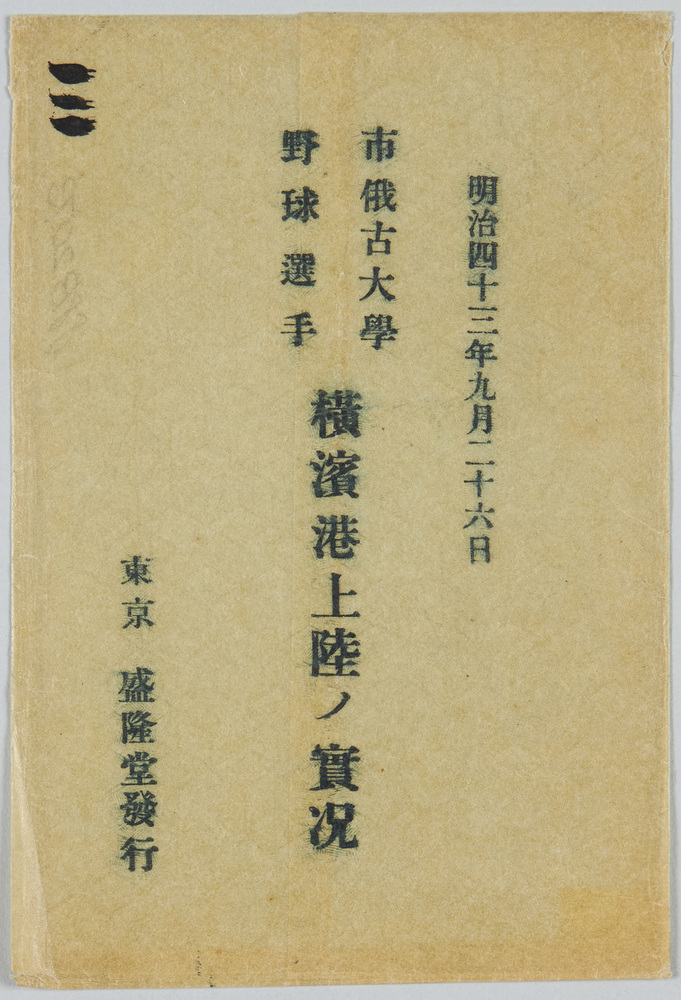 明治四十三年九月二十六日
市俄古大學
野球選手
橫濱港上陸ノ實況
東京 盛隆堂發行